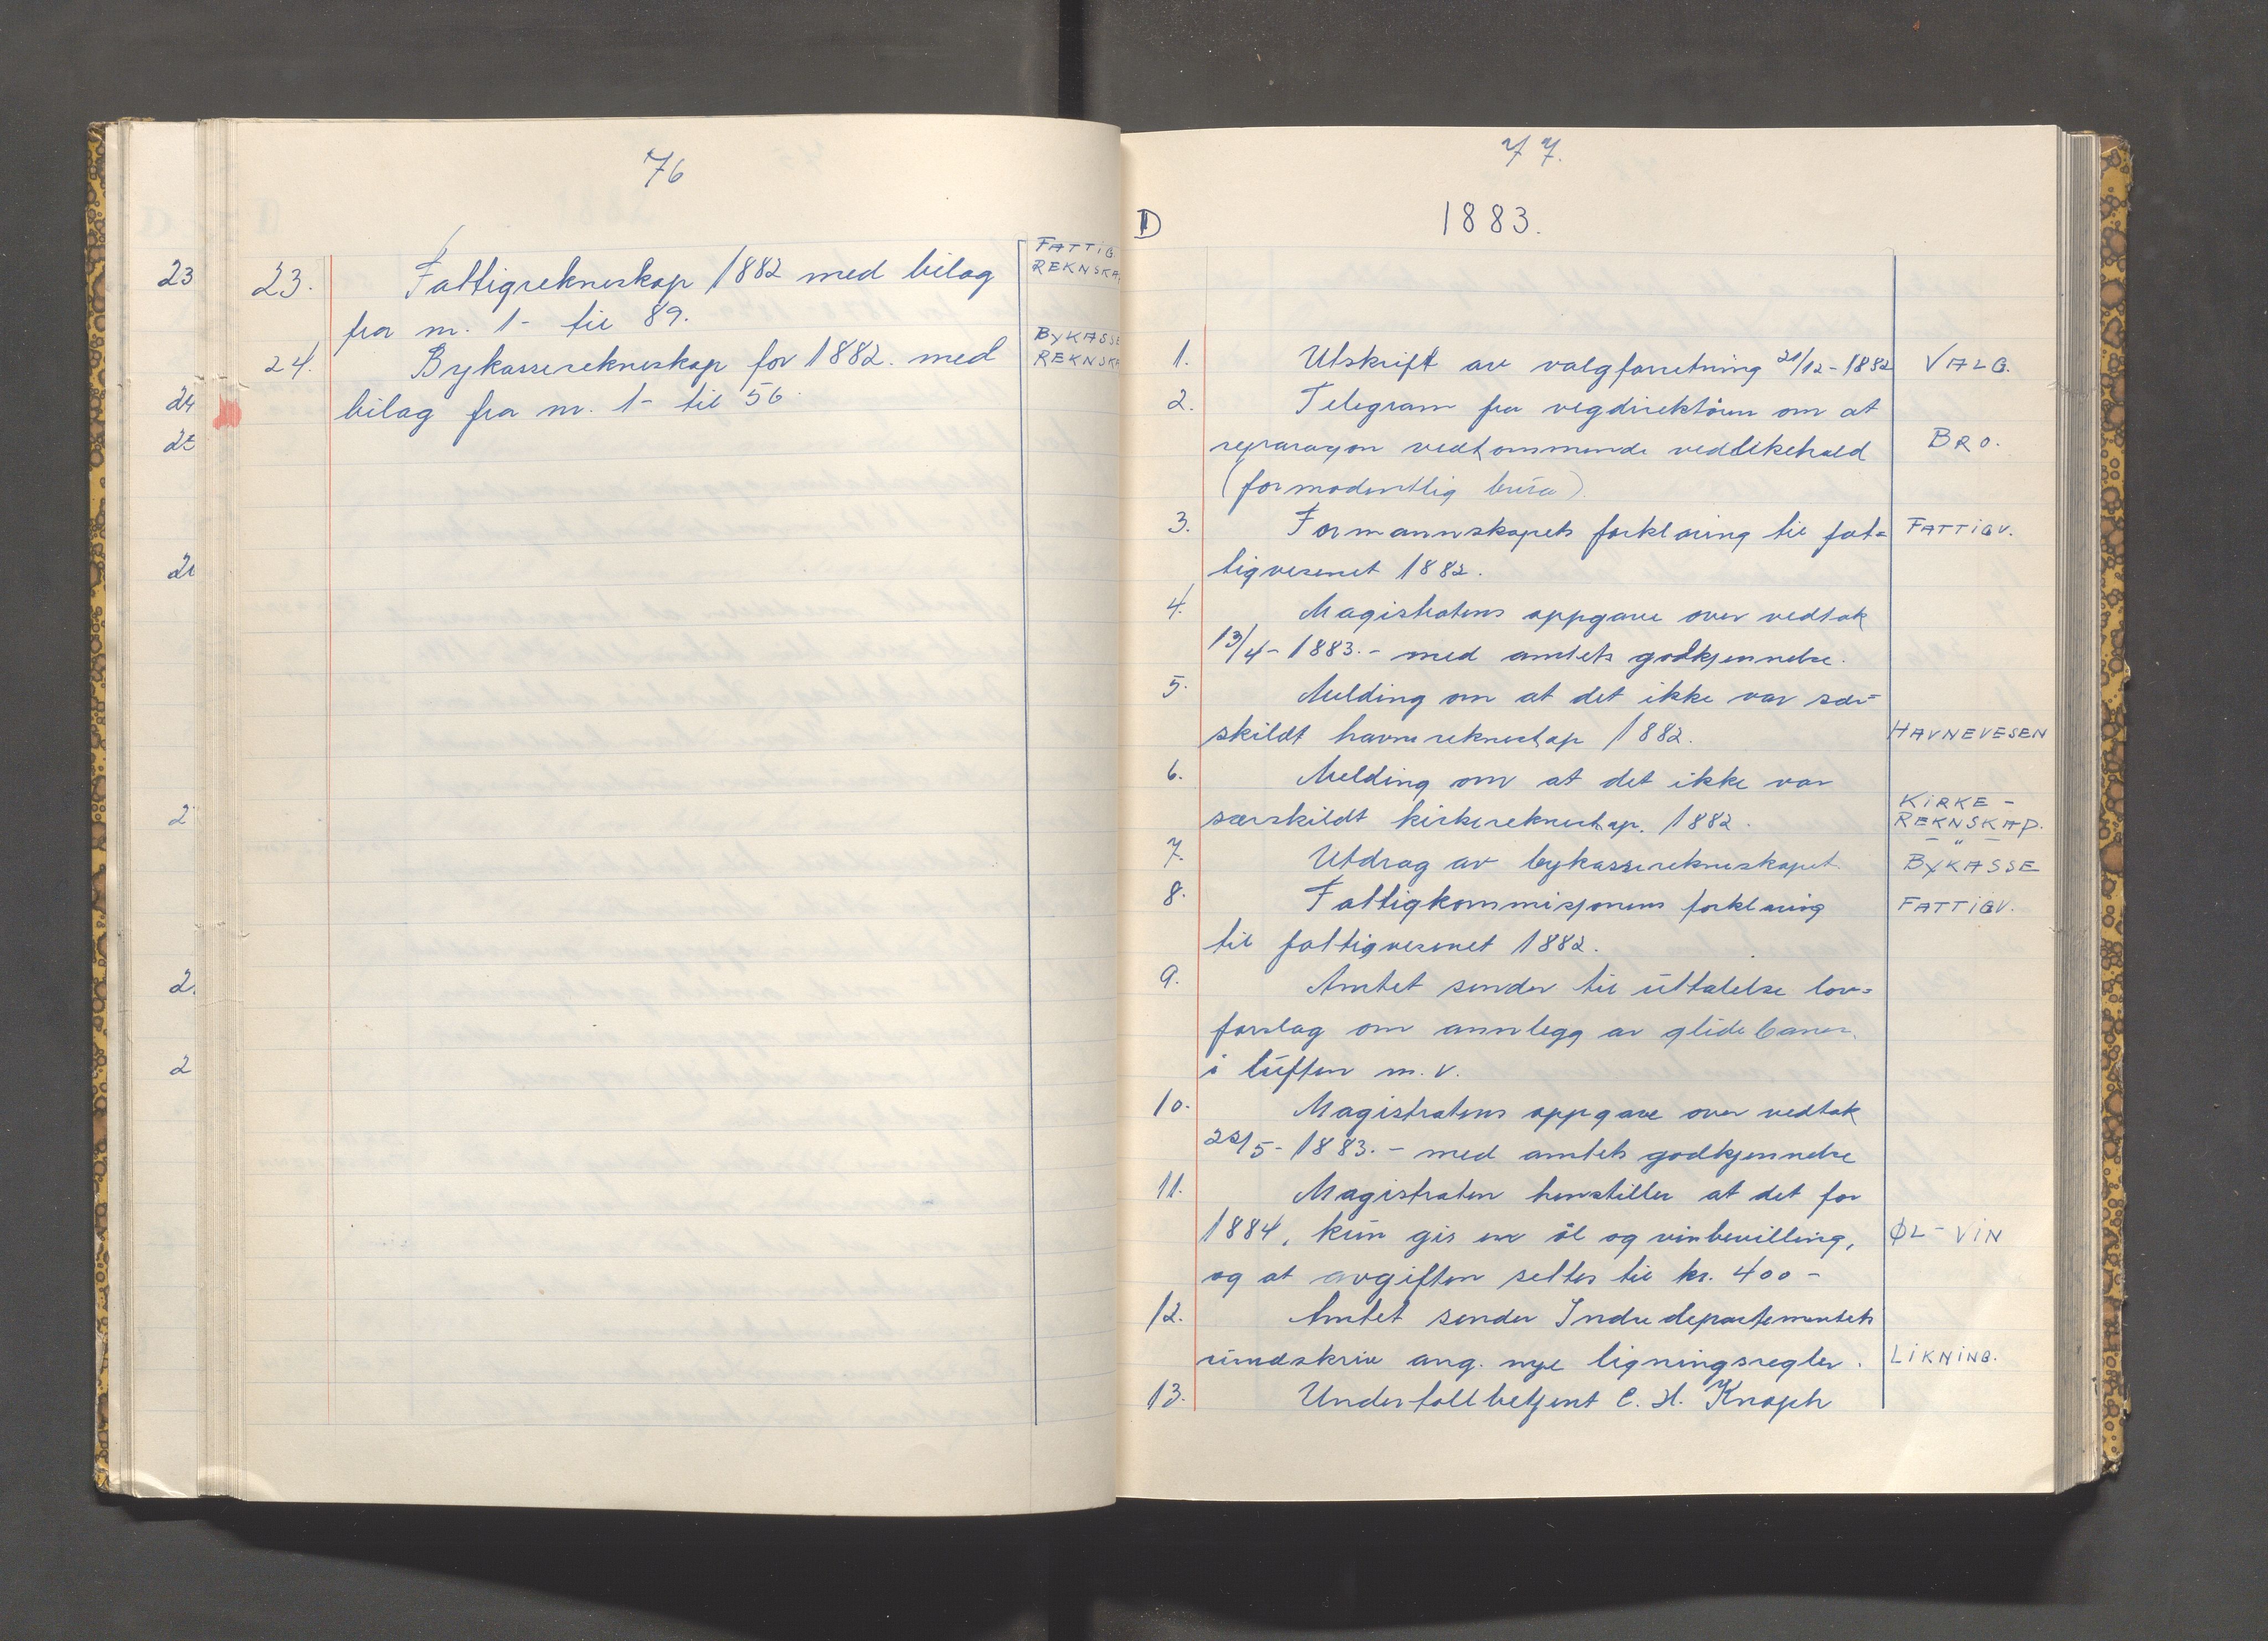 76
23
23.
Fattigrekneskap 1882 med bilag
FATTIG.
REKNSKA
fra nr. 1 - til 89.
24.
Bykasserekneskap for 1882. med
BYKASSE
REKNSKA
24
bilag fra nr. 1 - til 56.
77.
D
1883.
1.
Utskrift av valgforretning 21/12 - 1882
VALG.
2.
Telegram fra vegdirektören om at
reparasjon vedkommende vedlikehald
BRO.
(formodentlig brúa).
3.
Formannskapets forklaring til fat=
FATTIGV.
tigvesenet 1882.
4.
Magistratens oppgave over vedtak
13/4 - 1883. - med amtets godkjennelse.
5.
Melding om at det ikke var sær=
skildt havnerekneskap 1882.
HAVNEVESEN
6.
Melding om at det ikke var
særskildt kirkerekneskap. 1882.
KIRKE -
REKNSKAP.
- " -
7.
Utdrag av bykasserekneskapet.
BYKASSE
8.
Fattigkommisjonens forklaring
FATTIGV.
til fattigvesenet 1882.
9.
Amtet sender til úttalelse lov=
forslag om annlegg av glidebaner.
i lúften m.v.
10.
Magistratens oppgave over vedtak
22/5 - 1883. - med amtets godkjennelse
11.
Magistraten henstiller at det for
1884, kún gis en öl og vinbevilling,
ØL - VIN
og at avgiften settes til kr. 400 -
12.
Amtet sender Indredepartementets
rúndskriv ang. nye ligningsregler.
LIKNING.
13.
Undertollbetjent C. H. Knoph